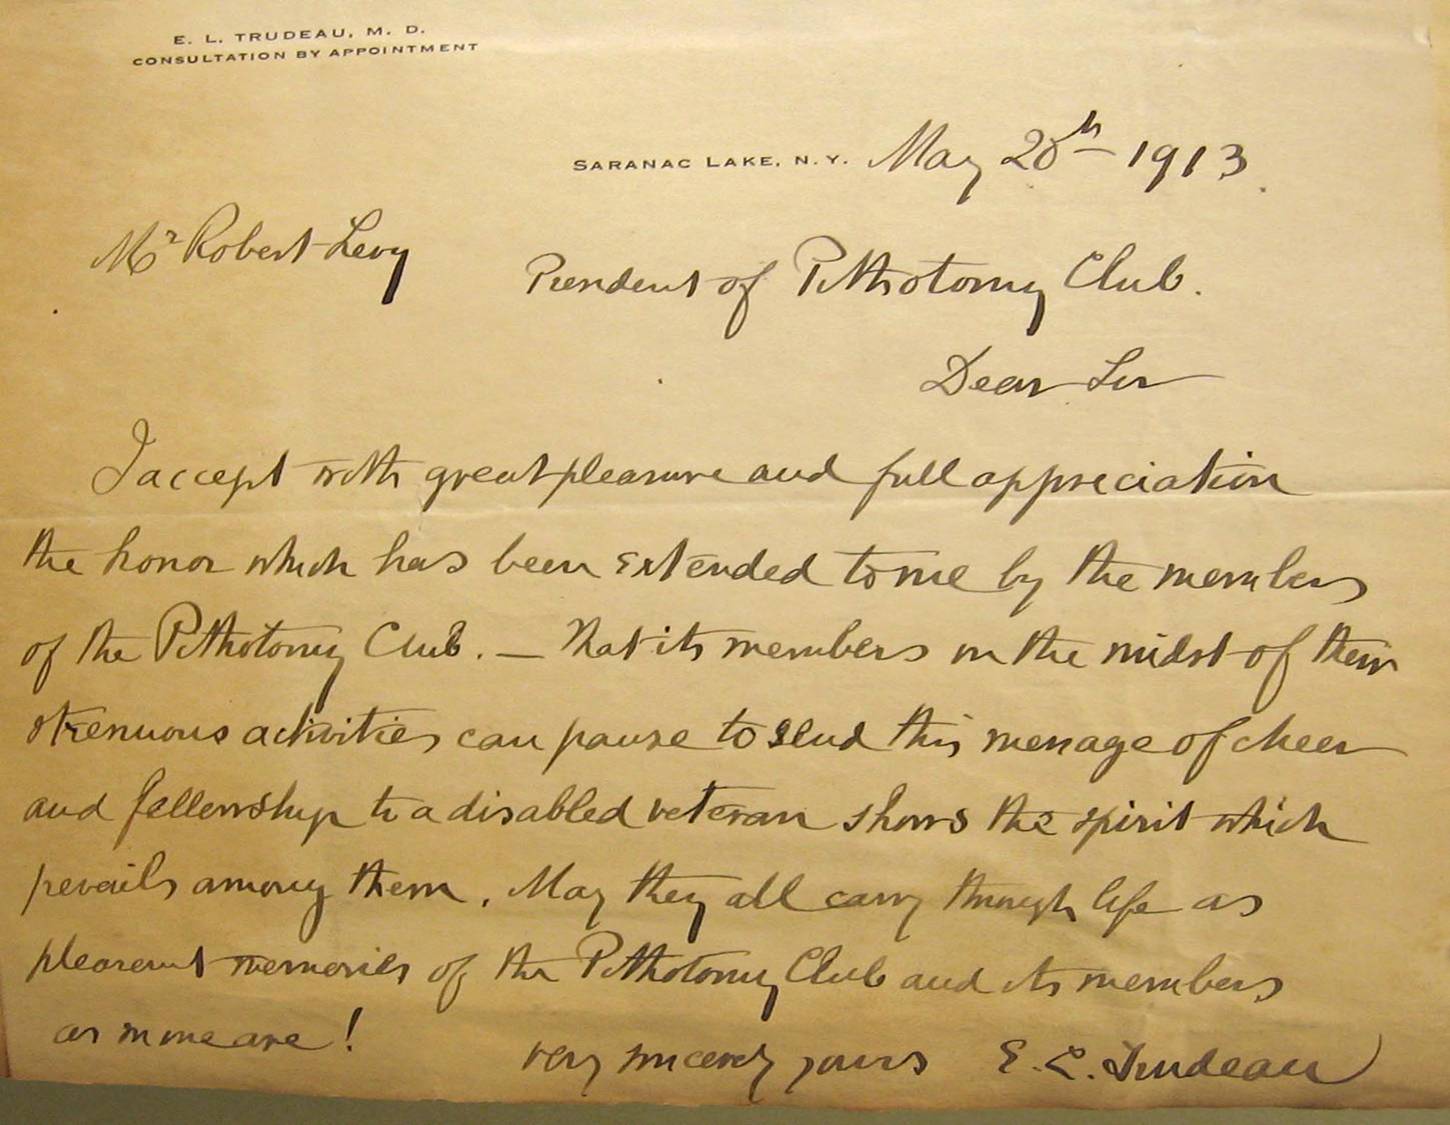 E. L. TRUDEAU, M. D.
CONSULTATION BY APPOINTMENT
SARANAC LAKE, N. Y. May 20th 1913.
Mr Robert Levy
President of Pithotomy Club.
Dear Sir
I accept with great pleasure and full appreciation
the honor which has been extended to me by the members
of the Pithotomy Club. — That its members in the midst of their
strenuous activities can pause to send this message of cheer
and fellowship to a disabled veteran shows the spirit which
prevails among them. May they all carry through life as
pleasant memories of the Pithotomy Club and its members
as mine are!
Very sincerely yours E. L. Trudeau